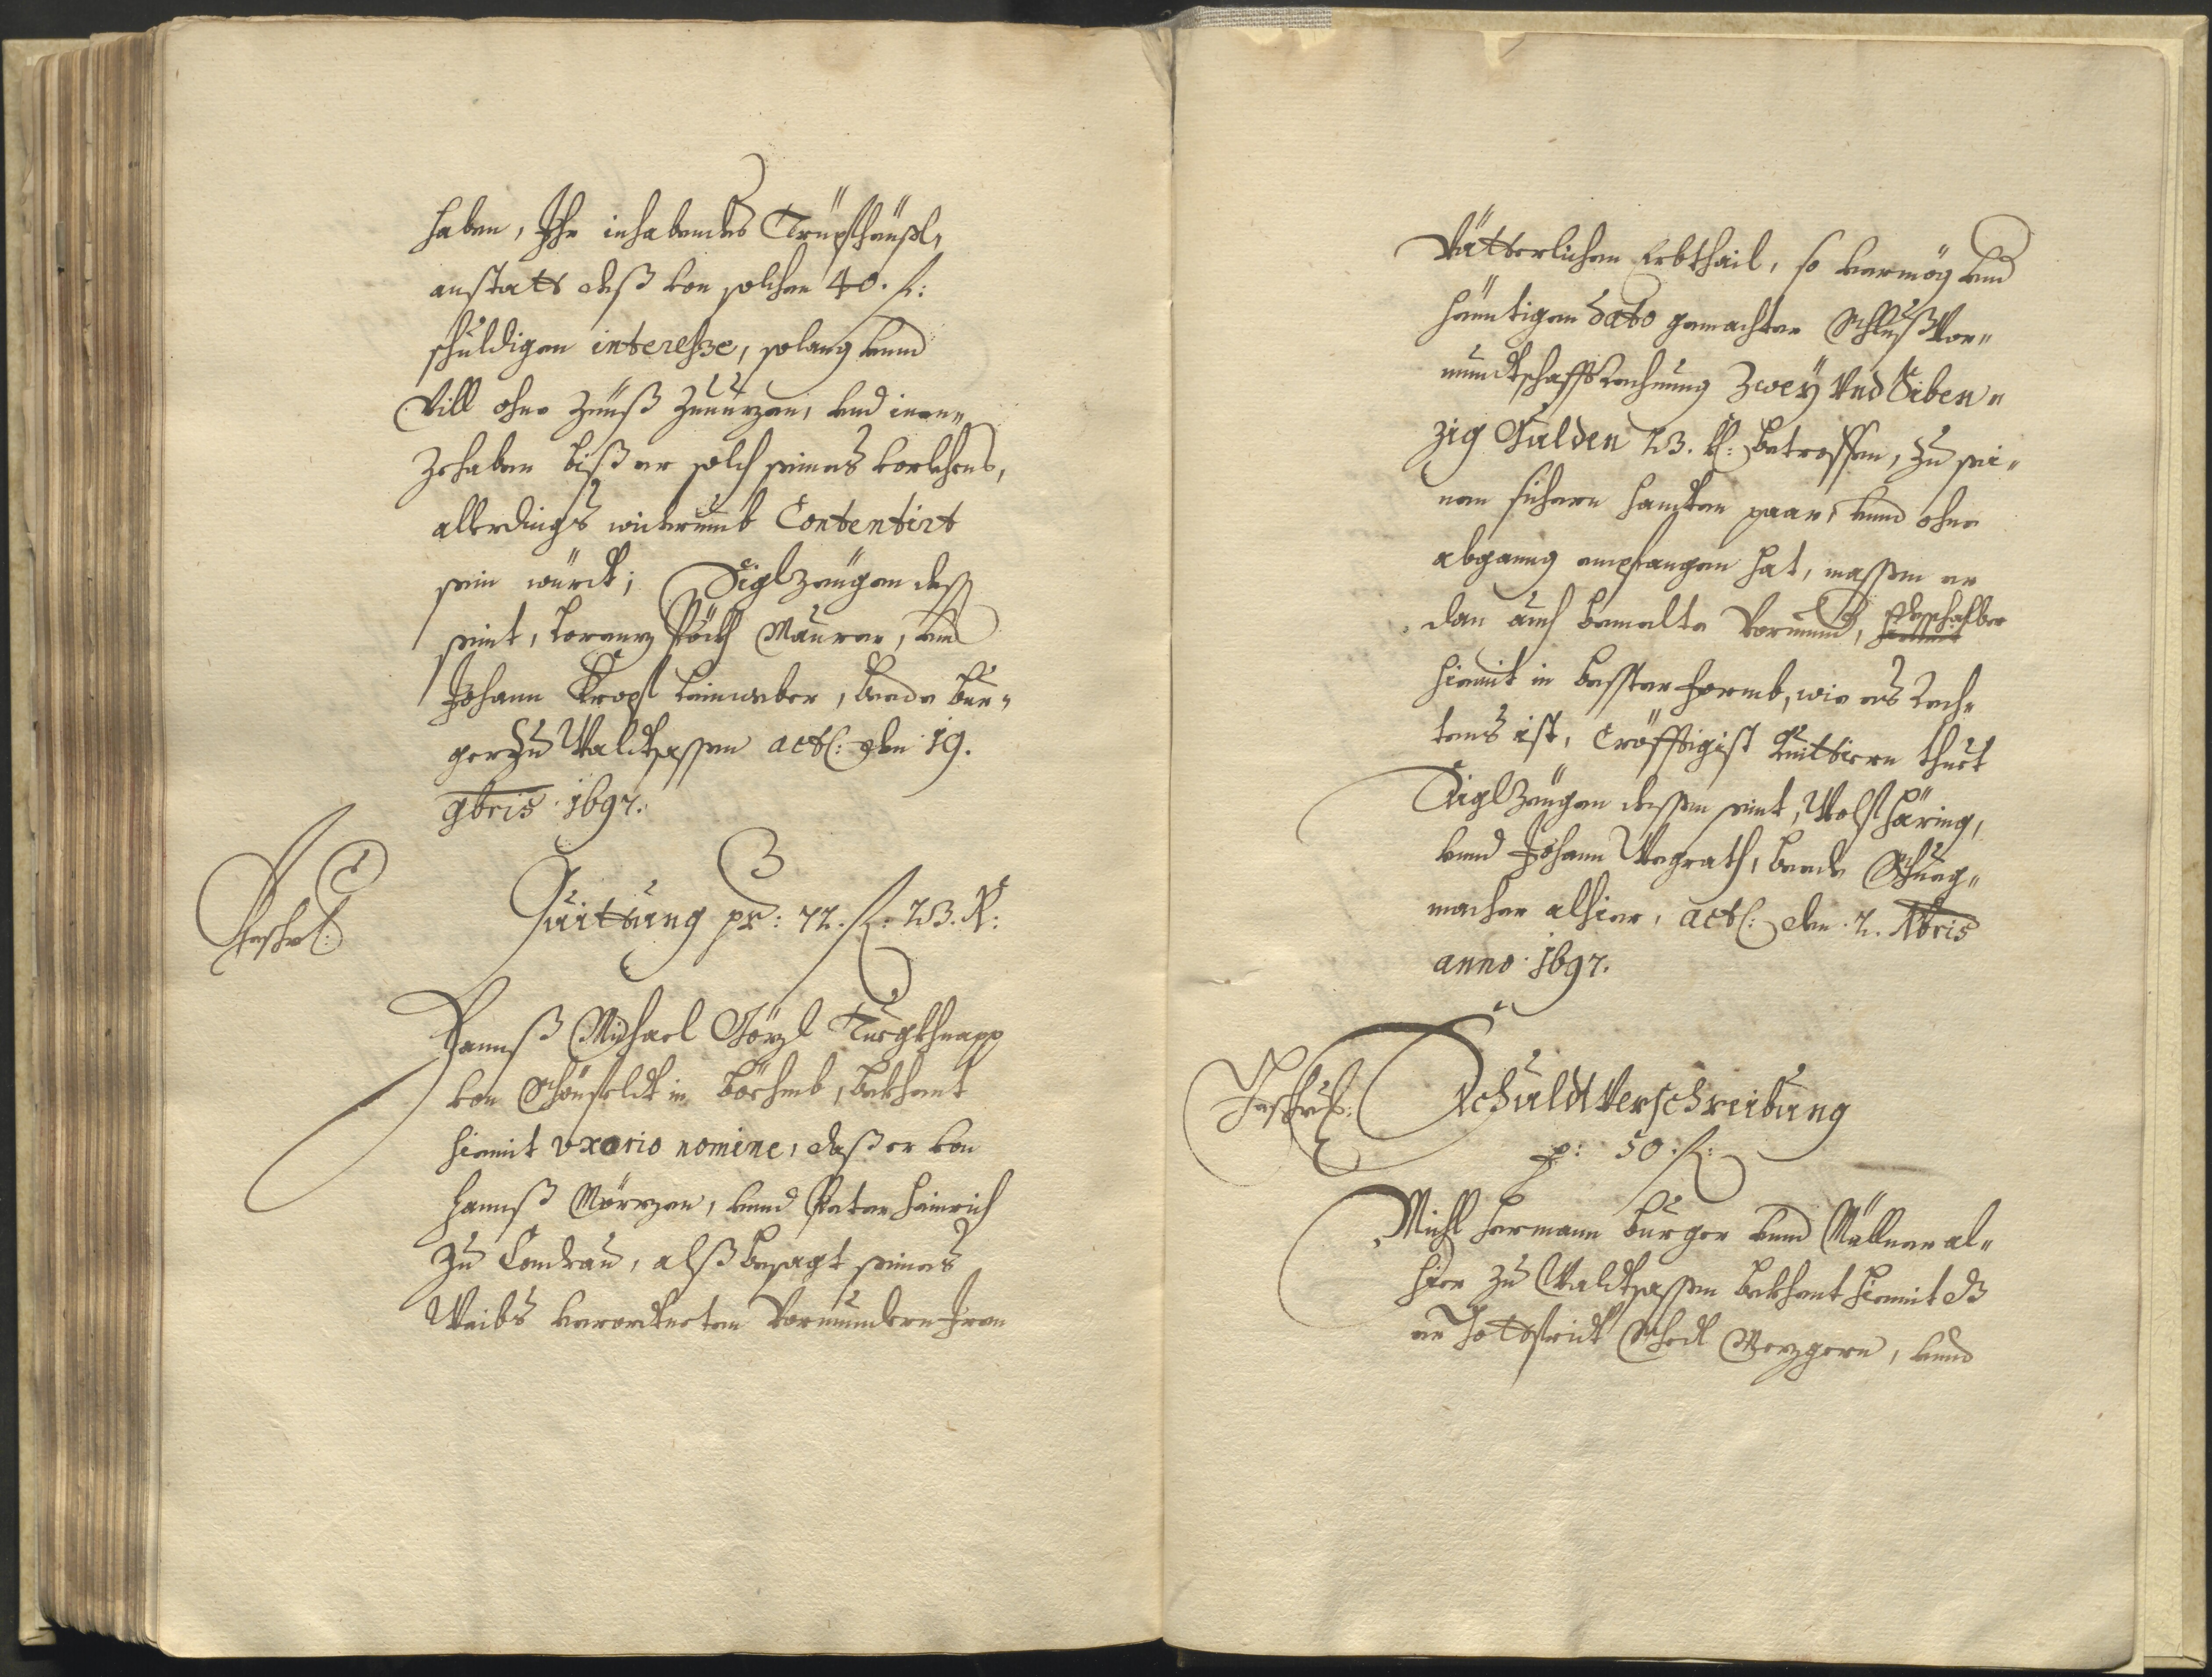 haben, Ihr inhabendes Trüpfheüßl,
anstatt deß von solchen 40. fl:
schuldigen interehse, solang vnnd
Vill ohne Zünß Zunuzen, vnd innen„
Zehaben biß er solch seines vorlehens,
allerdings widerumb Contentirt
sein würdt; Siglzeügen deß
seint, Lorenz Maurer, vnd
Johann Kropf Leinweber, beede bur„
ger zu Waldtsassen act: den 19.
9bris 1697.
Quittung pr: 72. fl: 23. kr:
Hannß Michael Görzl Tuechkhnapp
von Schönfeldt in Böehmb, bekhent
hiemit uxorio nomine, daß er von
Hannß Mörzen, vnnd Peter Heinrich
Zu Condrau, alß besagt seines
Weibs verordneten Vormundern Iren
Vätterlichen Erbtheil, so vermög vnd
heüntigen dato gemachter Schluß Vor„
mundtschaffts Rechnung Zwey Vnd Siben„
zig Gulden 23. kr: betroffen, zu sei„
nen sichern handten paar, vnnd ohne
abganng empfangen hat, massen er
dan auch bemelte Vormund, deßhalber
hiemit in bester formb, wie es Rech„
tens ist, Cröfftigist quittiern thuet
Siglzeügen dessen seint, Wolf Häring,
vnnd Johann Wegrath, beede Schuech„
macher alhier, act: den 2. Xbris
anno 1697.
Schuldt Verschreibung
p: 50: fl:
Michl Hermann burger vnnd Müllner al„
hier zu Waldtsassen bekhent hiemit dß
er Gottfridt Schedl Mezgern, vnnd